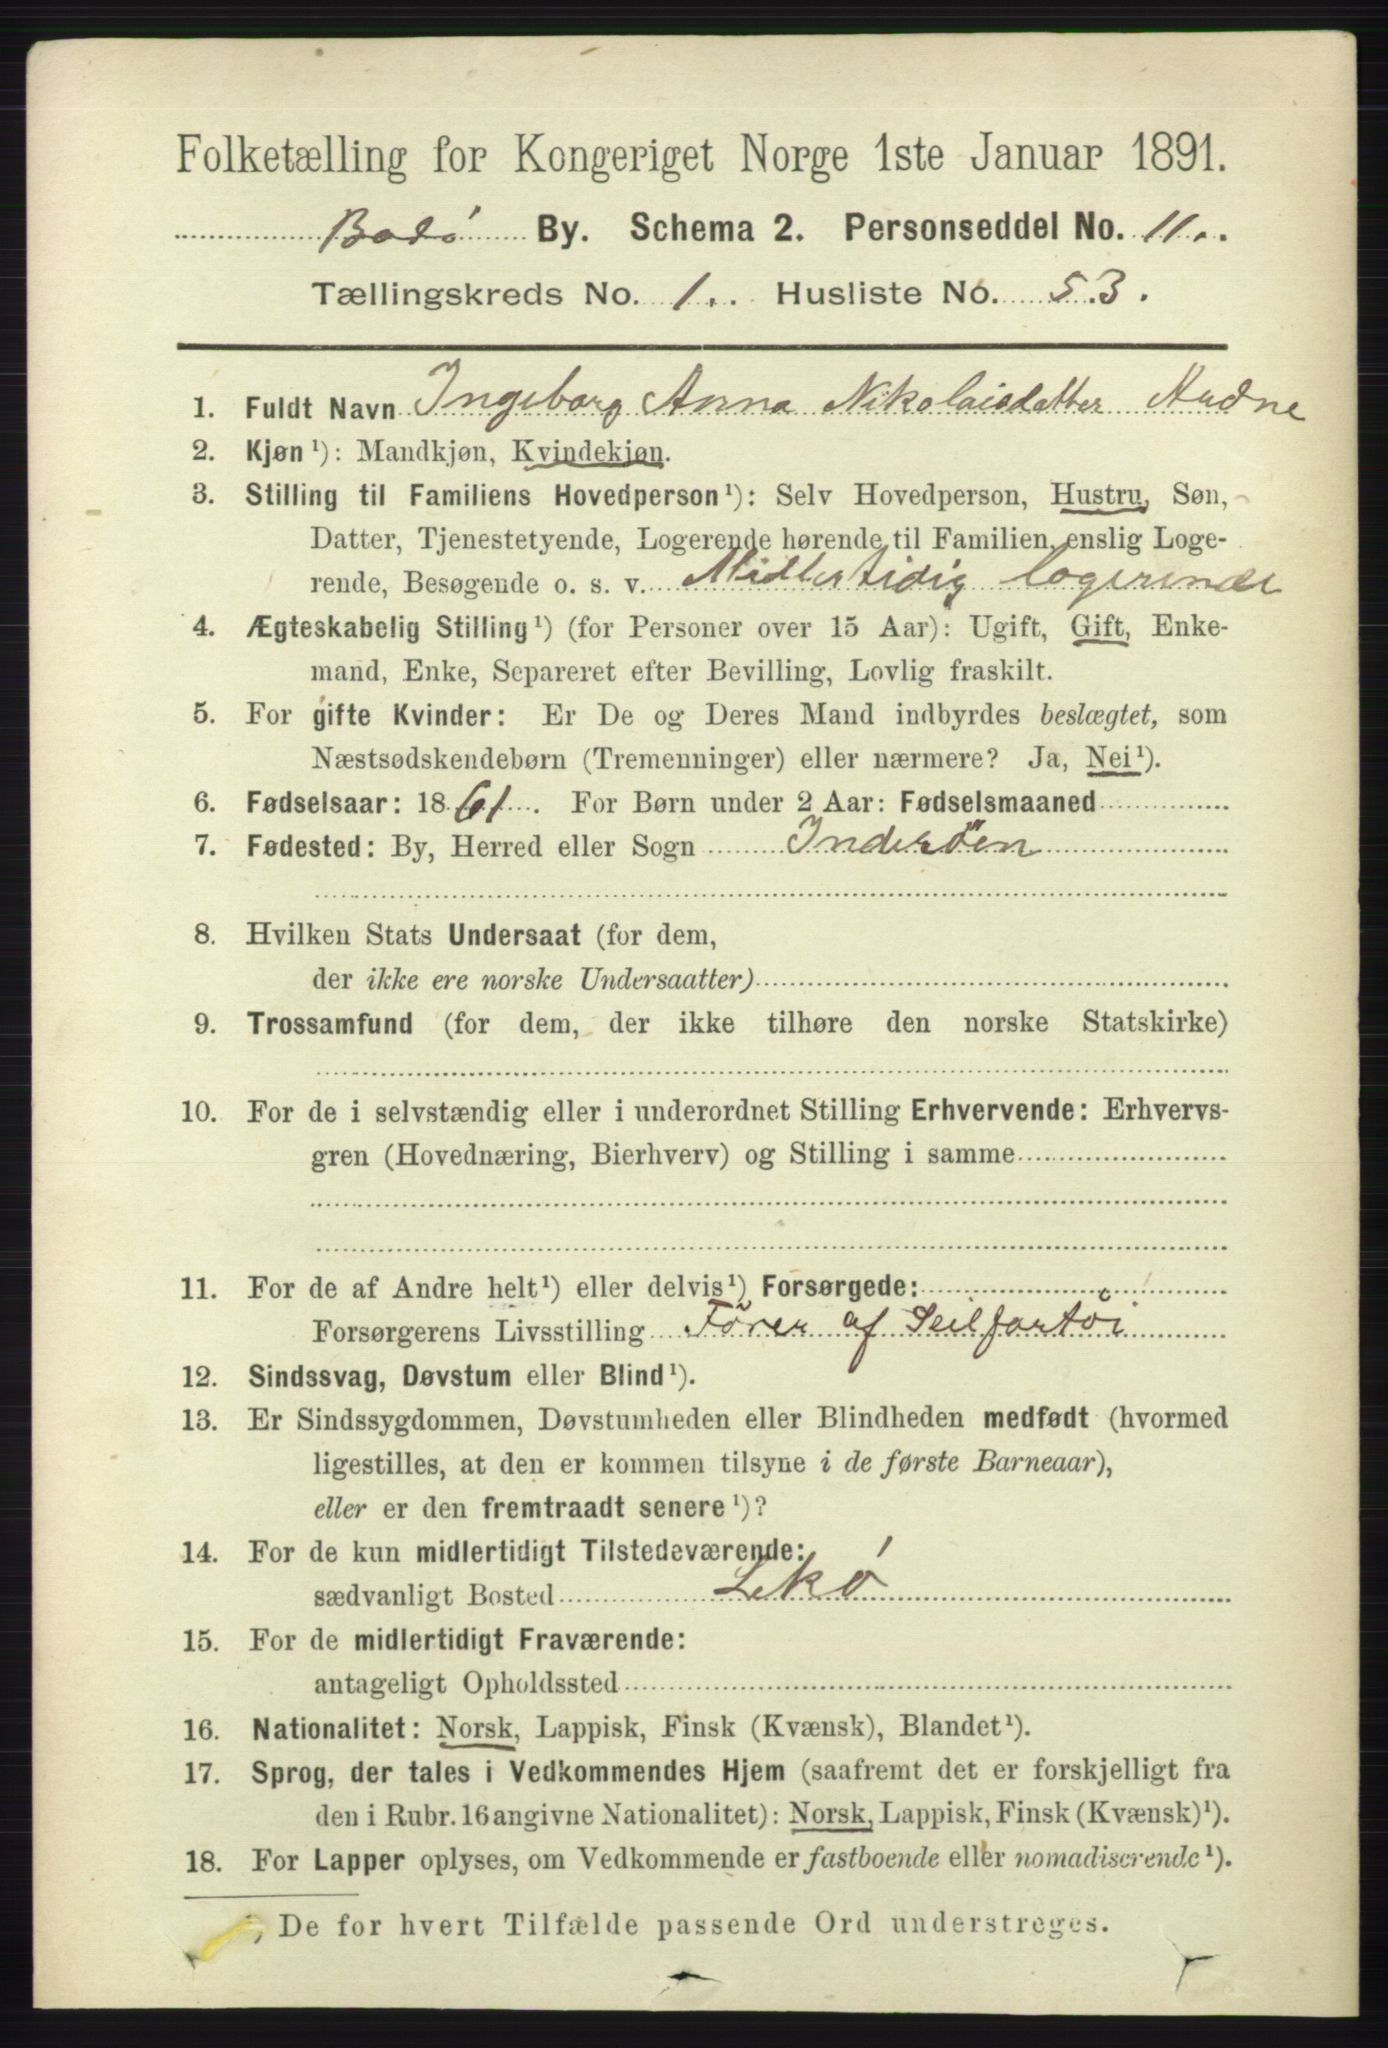 Folketælling for Kongeriget Norge 1ste Januar 1891.
Bodö By. Schema 2. Personseddel No. 11.
Tællingskreds No. 1. Husliste No. 53.
1. Fuldt Navn Ingeborg Anna Nikolaisdatter
2. Kjøn¹): Mandkjøn, Kvindekjøn.
3. Stilling til Familiens Hovedperson¹): Selv Hovedperson, Hustru, Søn,
Datter, Tjenestetyende, Logerende hørende til Familien, enslig Loge-
rende, Besøgende o. s. v. Midlertidig logerende
4. Ægteskabelig Stilling¹) (for Personer over 15 Aar): Ugift, Gift, Enke-
mand, Enke, Separeret efter Bevilling, Lovlig fraskilt.
5. For gifte Kvinder: Er De og Deres Mand indbyrdes beslægtet, som
Næstsødskendebørn (Tremenninger) eller nærmere? Ja, Nei¹).
6. Fødselsaar: 1861. For Børn under 2 Aar: Fødselsmaaned
7. Fødested: By, Herred eller Sogn Inderöen
8. Hvilken Stats Undersaat (for dem,
der ikke ere norske Undersaatter)
9. Trossamfund (for dem, der ikke tilhøre den norske Statskirke)
10. For de i selvstændig eller i underordnet Stilling Erhvervende: Erhvervs-
gren (Hovednæring, Bierhverv) og Stilling i samme
11. For de af Andre helt¹) eller delvis¹) Forsørgede:
Forsørgerens Livsstilling Förer af Seilfartöi
12. Sindssvag, Døvstum eller Blind¹).
13. Er Sindssygdommen, Døvstumheden eller Blindheden medfødt (hvormed
ligestilles, at den er kommen tilsyne i de første Barneaar),
eller er den fremtraadt senere¹)?
14. For de kun midlertidigt Tilstedeværende:
sædvanligt Bosted Lekö
15. For de midlertidigt Fraværende:
antageligt Opholdssted
16. Nationalitet: Norsk, Lappisk, Finsk (Kvænsk), Blandet¹).
17. Sprog, der tales i Vedkommendes Hjem (saafremt det er forskjelligt fra
den i Rubr. 16 angivne Nationalitet): Norsk, Lappisk, Finsk (Kvænsk)¹).
18. For Lapper oplyses, om Vedkommende er fastboende eller nomadiserende¹).
¹) De for hvert Tilfælde passende Ord understreges.